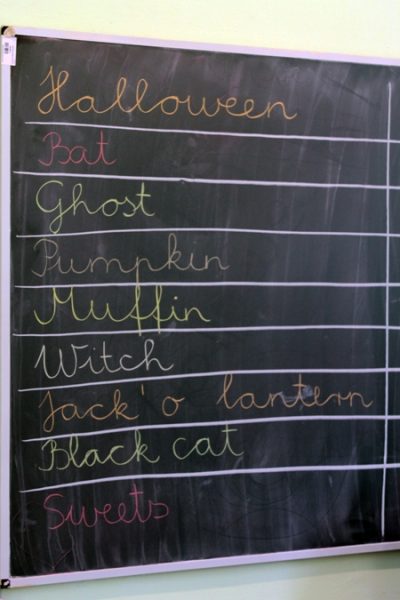 Halloween
Bat
Ghost
Pumpkin
Muffin
Witch
Jack'o lantern
Black cat
Sweets